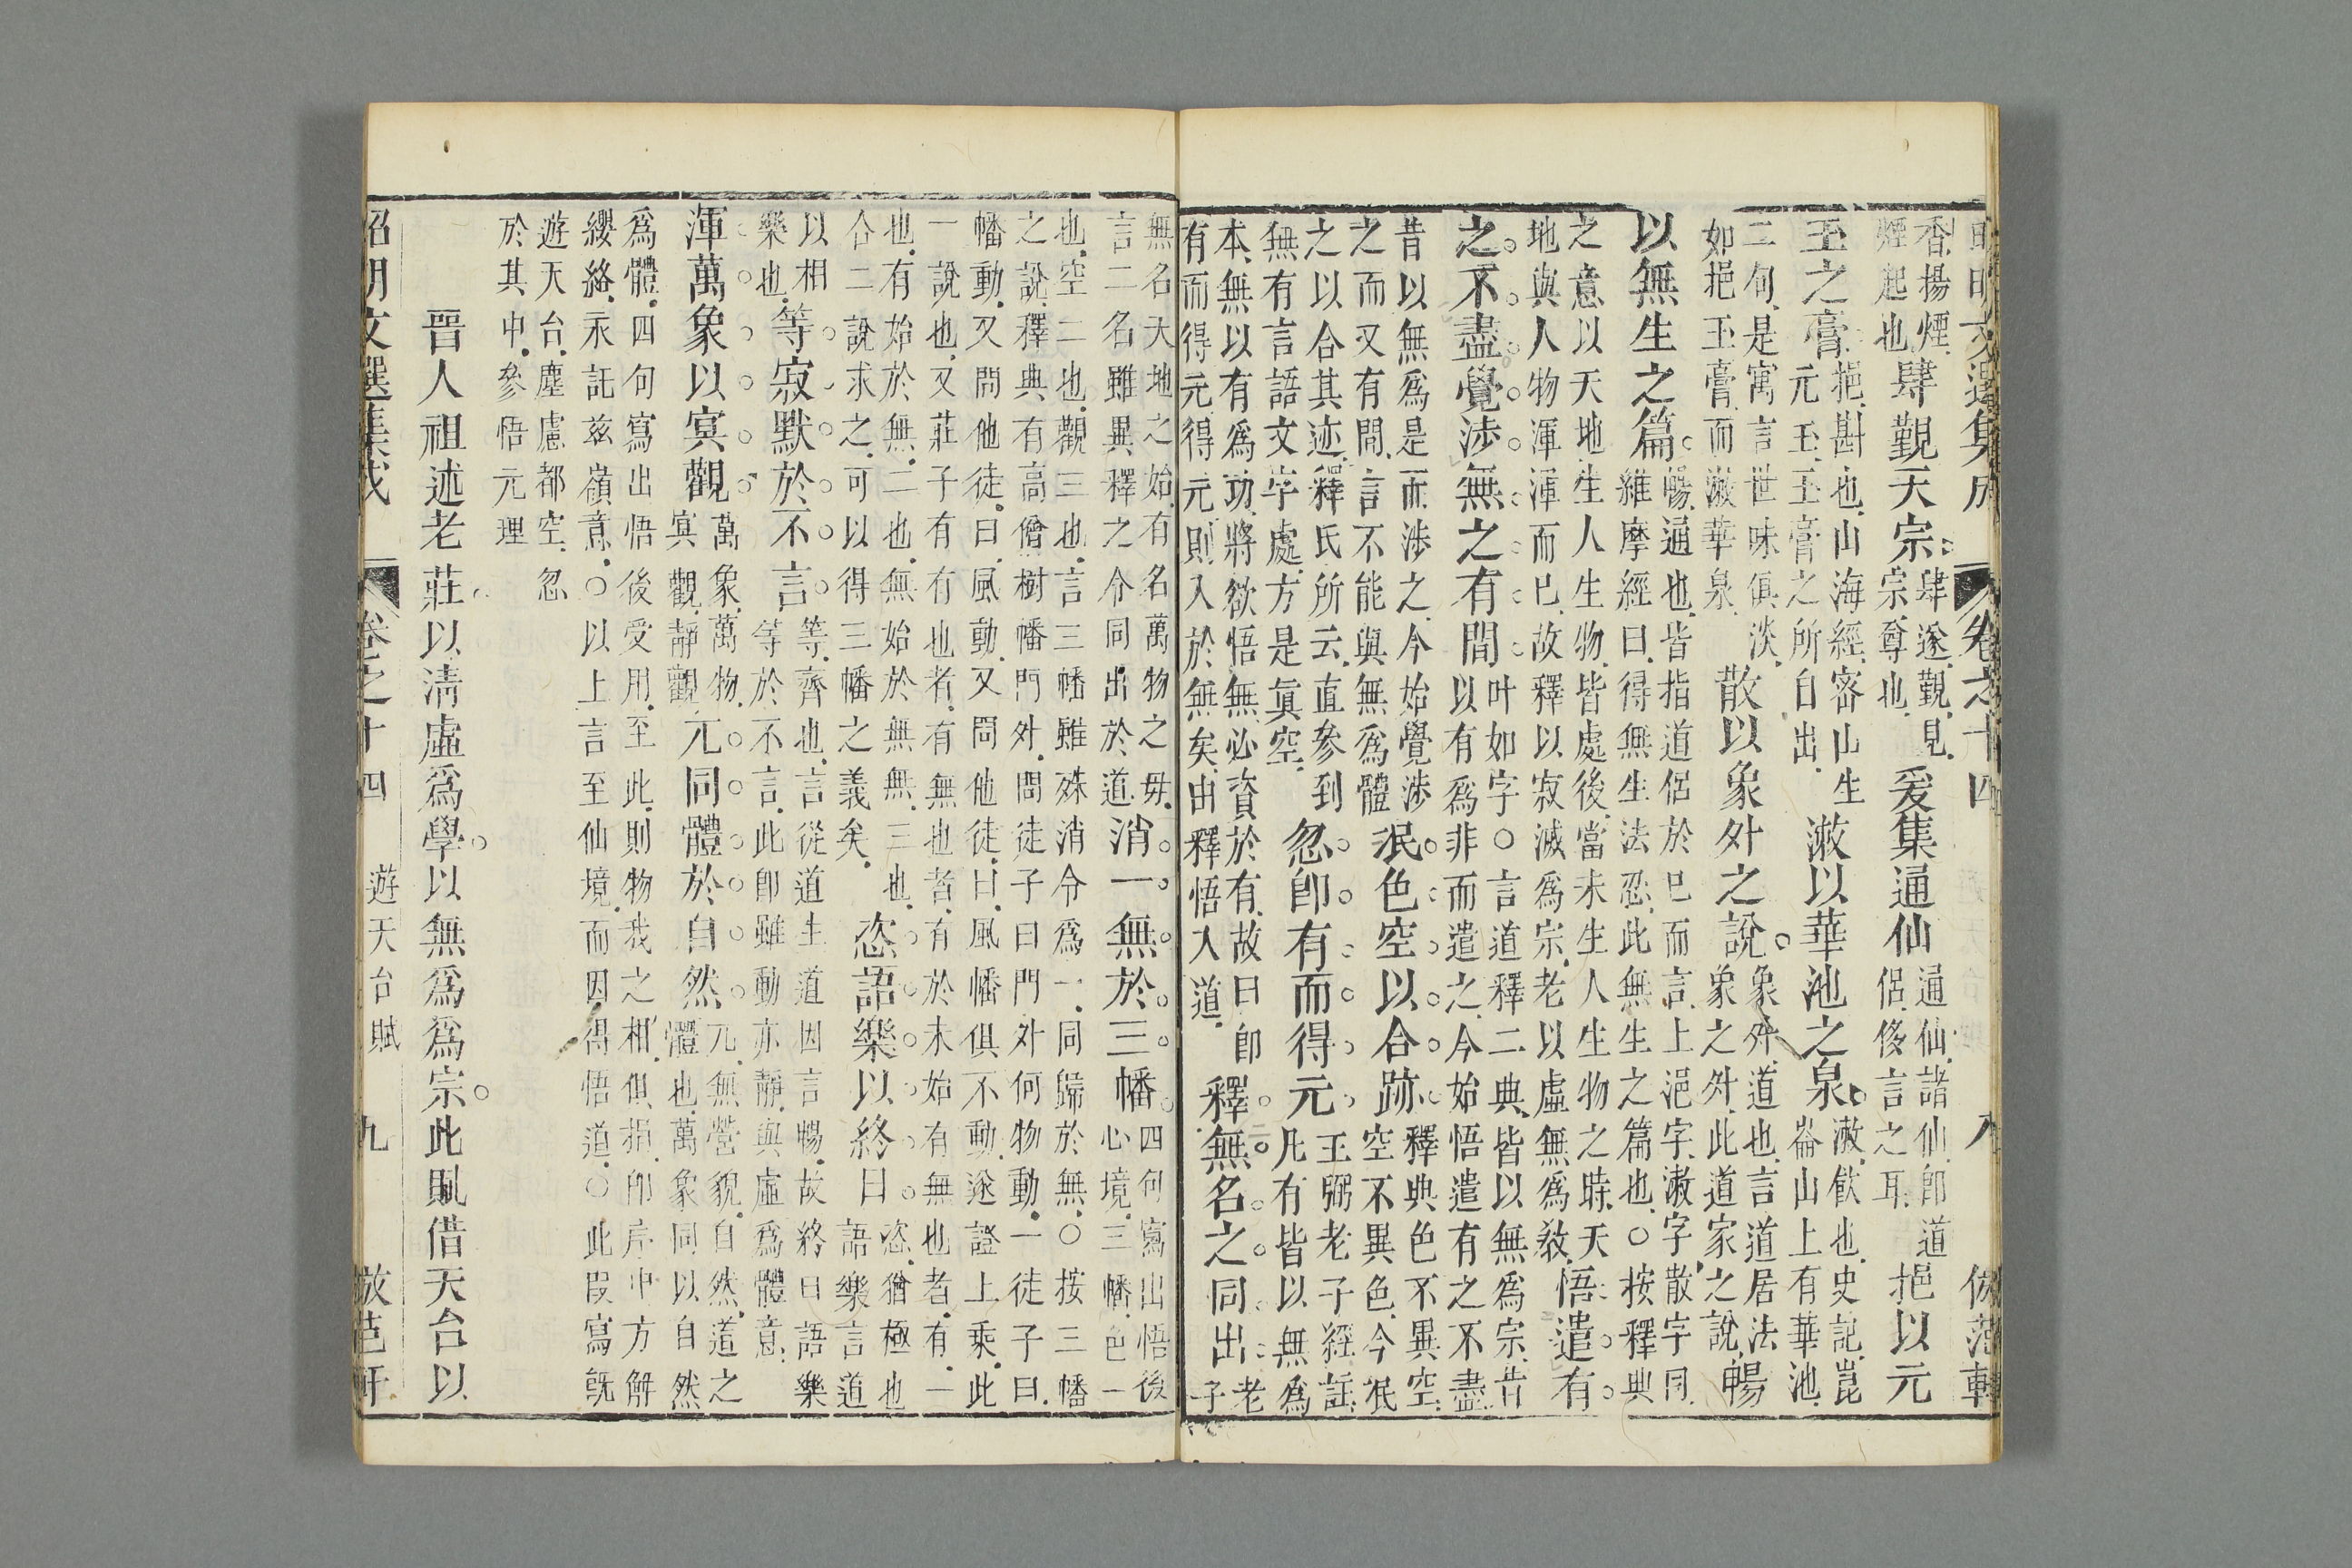 昭明文選集成 卷之十四 八 倣范軒
香揚煙
煙起也
肆覲天宗
肆遂覲見
宗尊也
爰集通仙
通仙諸仙卽道
侶侈言之耳
挹以元
玉之膏
挹斟也山海經密山生
元玉玉膏之所自出
漱以華池之泉
漱飲也史記崑
崙山上有華池
二句是寓言世味俱淡
如挹玉膏而漱華泉
散以象外之說
象外道也言道居法
象之外此道家之說
暢
以無生之篇
暢通也皆指道侶於已而言上浥字漱字散字同
維摩經曰得無生法忍此無生之篇也○按釋典
之意以天地生人生物皆處後當未生人生物之時天
地與人物渾渾而已故釋以寂滅爲宗老以虛無爲教
悟遣有
之不盡覺涉無之有間
叶如字○言道釋二典皆以無爲宗昔
以有爲非而遣之今始悟遣有之不盡
昔以無爲是而涉之今始覺涉
之而又有間言不能與無爲體
泯色空以合跡
釋典色不異空
空不異色今泯
之以合其迹釋氏所云直參到
無有言語文字處方是眞空
忽卽有而得元
王弼老子經註
凡有皆以無爲
本無以有爲功將欲悟無必資於有故曰卽
有而得元得元則入於無矣由釋悟入道
釋無名之同出
老
子
無名天地之始有名萬物之母
言二名雖異釋之令同出於道
消一無於三幡
四句寫出悟後
心境三幡色一
也空二也觀三也言三幡雖殊消令爲一同歸於無○按三幡
之說釋典有高僧樹幡門外問徒子曰門外何物動一徒子曰
幡動又問他徒曰風動又問他徒曰風幡俱不動遂證上乘此
一說也又莊子有有也者有無也者有於未始有無也者有一
也有始於無二也無始於無無三也
合二說求之可以得三幡之義矣
恣語樂以終日
恣猶極也
語樂言道
以相
樂也
等寂默於不言
等齊也言從道生道因言暢故終日語樂
等於不言此卽雖動亦靜與虛爲體意
渾萬象以冥觀
萬象萬物
冥觀靜觀
元同體於自然
元無營貌自然道之
體也萬象同以自然
爲體四句寫出悟後受用至此則物我之相俱捐卽序中方解
纓絡永託茲嶺意○以上言至仙境而因得悟道○此段寫旣
遊天台塵慮都空忽
於其中參悟元理
晉人祖述老莊以清虛爲學以無爲爲宗此賦借天台以
昭明文選集成 卷之十四 遊天台賦 九 倣范軒